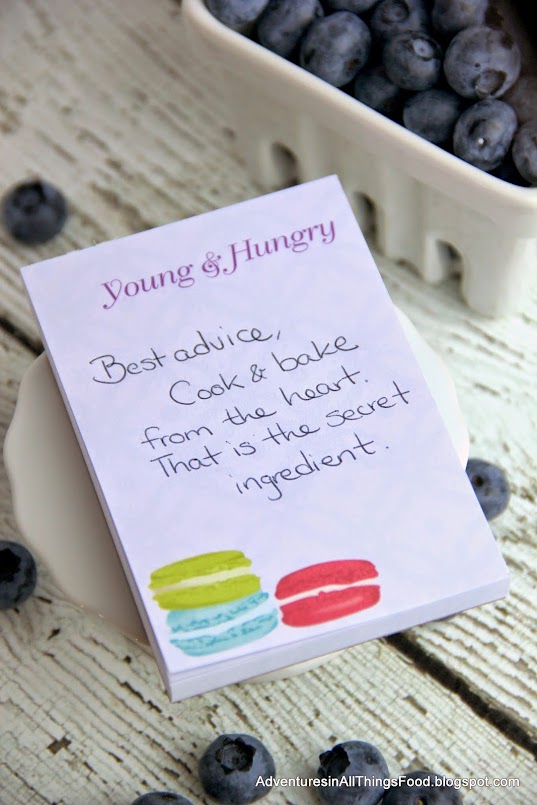 Young & Hungry
Best advice,
Cook & bake
from the heart.
That is the secret
ingredient.
AdventuresinAllThingsFood.blogspot.com